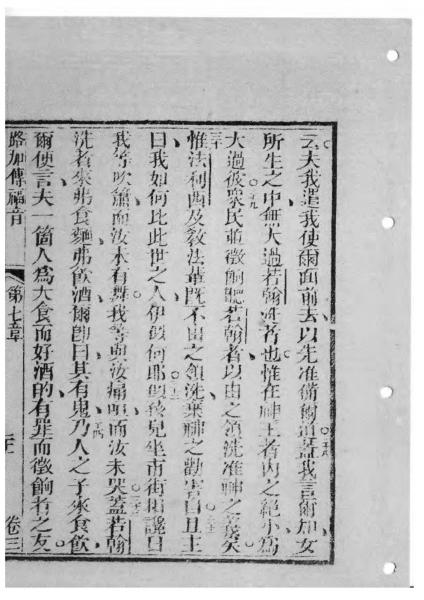 云夫我遣我使爾面前去以先准備爾道蓋我言爾知女
所生之中無大過若翰洗者也惟在神王者內之絕小為
大過彼眾民並徵餉聽若翰者以由之領洗准神之義矣
惟法利西及教法輩既不由之領洗棄神之勸言曰且主
曰我如何比此世之人伊似何耶似孩兒坐市街相謗曰
我等吹簫而汝本有舞我等哭汝痛而汝未哭蓋若翰
洗者來弗食麵弗飲酒爾即曰其有鬼乃人之子來食飲
爾便言夫一箇人為大食而好酒的有罪而徵餉者之友
路加傳福音
第七章
卷三